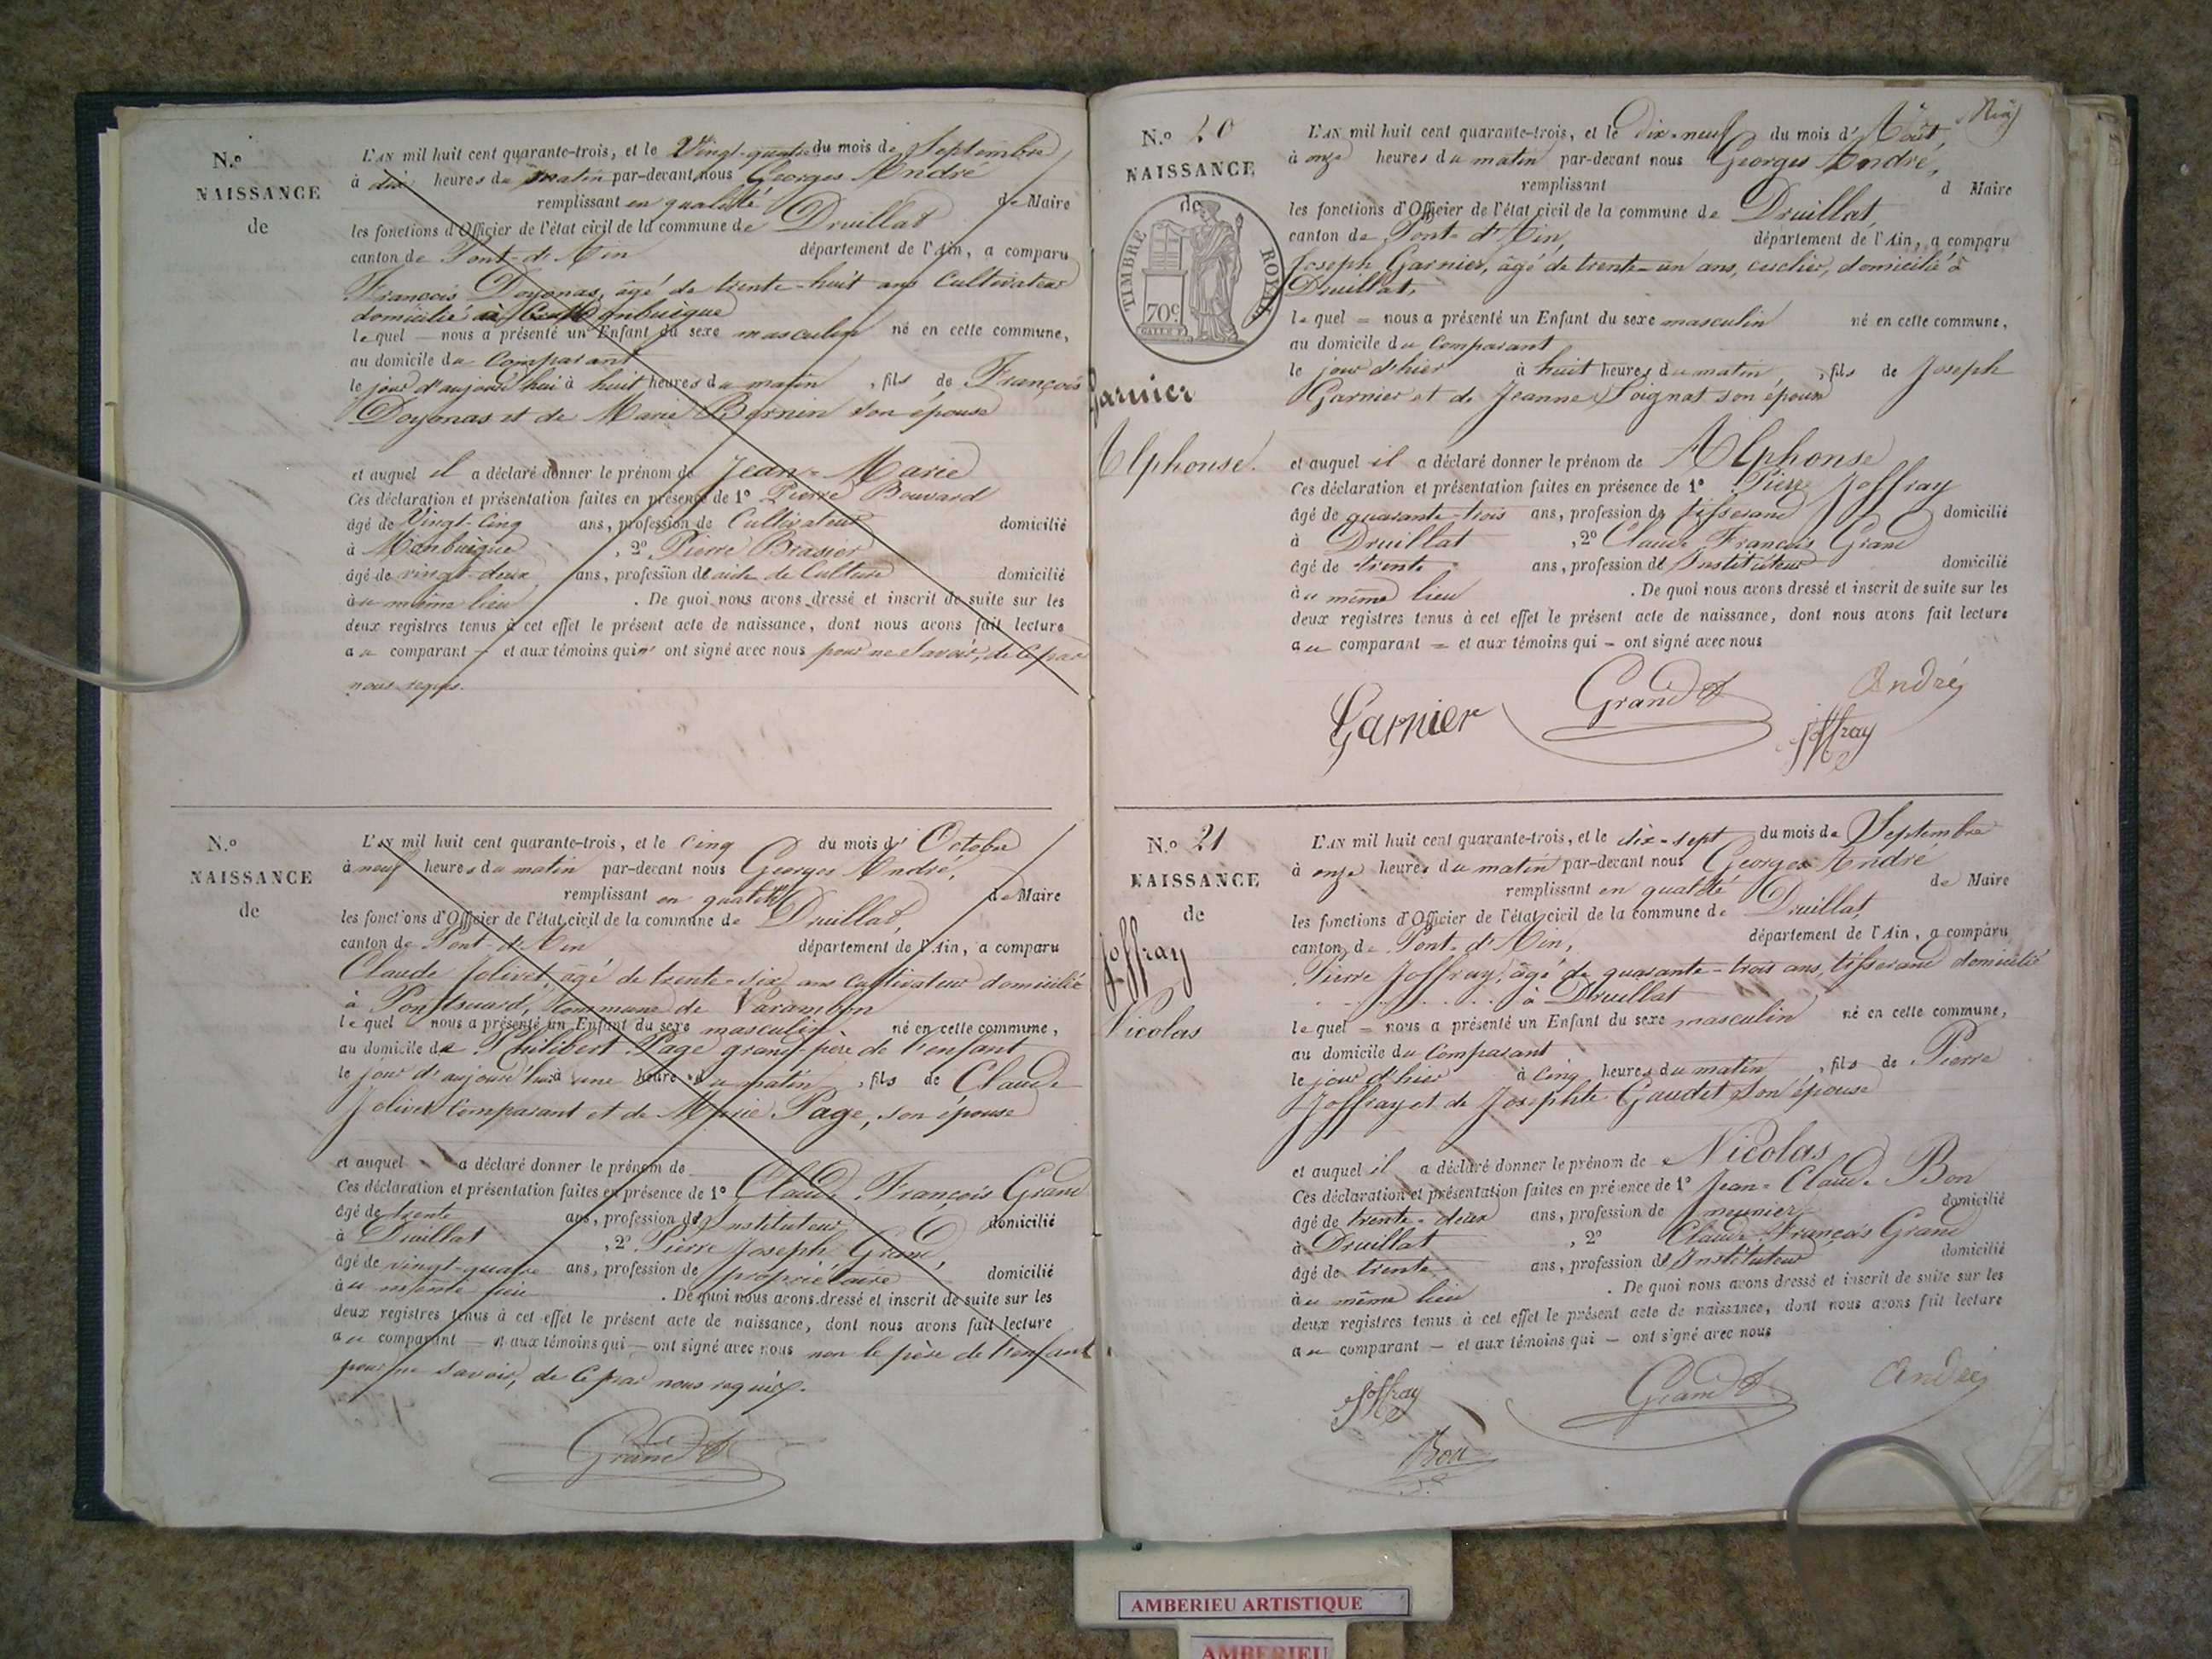 N.º
NAISSANCE
de
L'AN mil huit cent quarante-trois, et le Vingt-quatre du mois de Septembre
à dix heures du matin par-devant nous Georges André
remplissant en qualité de Maire
les fonctions d'Officier de l'état civil de la commune de Druillat
canton de Pont-d'Ain département de l'Ain, a comparu
François Doyonas, âgé de trente-huit ans Cultivateur
domicilié à
le quel — nous a présenté un Enfant du sexe masculin né en cette commune,
au domicile du Comparant
le jour d'aujourd'hui à huit heures du matin, fils de François
Doyonas et de Marie Bornin son épouse
et auquel il a déclaré donner le prénom de Jean-Marie
Ces déclaration et présentation faites en présence de 1º Pierre Bouvard
âgé de Vingt-Cinq ans, profession de Cultivateur domicilié
à Manbuigue, 2º Pierre Brasier
âgé de vingt-deux ans, profession d aide de Culture domicilié
au même lieu. De quoi nous avons dressé et inscrit de suite sur les
deux registres tenus à cet effet le présent acte de naissance, dont nous avons fait lecture
au comparant — et aux témoins qui n' ont signé avec nous pour ne Savoir, de Ce par
nous requis.
N.º
NAISSANCE
de
L'AN mil huit cent quarante-trois, et le Cinq du mois d' Octobre
à neuf heures du matin par-devant nous Georges André,
remplissant en qualité de Maire
les fonctions d'Officier de l'état civil de la commune de Druillat,
canton de Pont-d'Ain département de l'Ain, a comparu
Claude Jolivet, âgé de trente-six ans Cultivateur domicilié
à Commune de Varambon
le quel nous a présenté un Enfant du sexe masculin né en cette commune,
au domicile de Philibert Page grand-père de l'enfant
le jour d'aujourd'hui à une heure du matin, fils de Claude
Jolivet Comparant et de Marie Page, son épouse
et auquel a déclaré donner le prénom de
Ces déclaration et présentation faites en présence de 1º Claude François Grand
âgé de trente ans, profession d'Instituteur domicilié
à Druillat, 2º Pierre Joseph Grand,
âgé de vingt-quatre ans, profession de propriétaire domicilié
au même lieu. De quoi nous avons dressé et inscrit de suite sur les
deux registres tenus à cet effet le présent acte de naissance, dont nous avons fait lecture
au comparant — et aux témoins qui — ont signé avec nous non le père de l'enfant
pour ne savoir, de Ce par nous requis.
Grand
N.º 20
NAISSANCE
de
TIMBRE ROYAL
70c
Garnier
Alphonse.
L'AN mil huit cent quarante-trois, et le dix-neuf du mois d' Août,
à onze heures du matin par-devant nous Georges André,
remplissant d Maire
les fonctions d'Officier de l'état civil de la commune de Druillat,
canton de Pont-d'Ain, département de l'Ain, a comparu
Joseph Garnier, âgé de trente-un ans, domicilié à
Druillat,
le quel = nous a présenté un Enfant du sexe masculin né en cette commune,
au domicile du Comparant
le jour d'hier à huit heures du matin, fils de Joseph
Garnier et de Jeanne Soignat son épouse
et auquel il a déclaré donner le prénom de Alphonse
Ces déclaration et présentation faites en présence de 1º Pierre Joffray
âgé de quarante-trois ans, profession de tisserand domicilié
à Druillat, 2º Claude François Grand
âgé de trente ans, profession d'Instituteur domicilié
au même lieu. De quoi nous avons dressé et inscrit de suite sur les
deux registres tenus à cet effet le présent acte de naissance, dont nous avons fait lecture
au comparant = et aux témoins qui – ont signé avec nous
Garnier Grand André
Joffray
N.º 21
NAISSANCE
de
Joffray
Nicolas
L'AN mil huit cent quarante-trois, et le dix-sept du mois de Septembre
à onze heures du matin par-devant nous Georges André
remplissant en qualité de Maire
les fonctions d'Officier de l'état civil de la commune de Druillat,
canton de Pont-d'Ain, département de l'Ain, a comparu
Pierre Joffray, âgé de quarante-trois ans, tisserand domicilié
à Druillat
le quel = nous a présenté un Enfant du sexe masculin né en cette commune,
au domicile du Comparant
le jour d'hier à Cinq heures du matin, fils de Pierre
Joffray et de Josephte Gaudet son épouse
et auquel il a déclaré donner le prénom de Nicolas
Ces déclaration et présentation faites en présence de 1º Jean-Claude Bon
âgé de trente-deux ans, profession de meunier domicilié
à Druillat, 2º Claude François Grand
âgé de trente ans, profession d'Instituteur domicilié
au même lieu. De quoi nous avons dressé et inscrit de suite sur les
deux registres tenus à cet effet le présent acte de naissance, dont nous avons fait lecture
au comparant — et aux témoins qui — ont signé avec nous
Joffray Grand André
Bon
AMBERIEU ARTISTIQUE
AMBERIEU